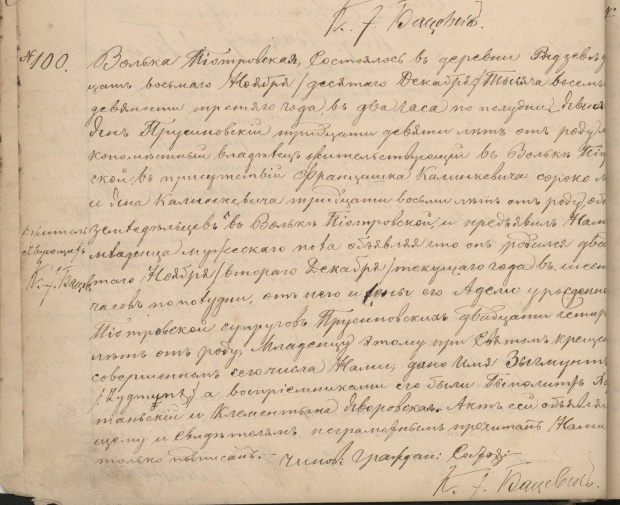 К. J. Бацевичъ.
№100. Волька Піотровская, Состоялось въ деревни
цать восьмаго Ноября /десятаго Декабря/ Тысяча восем
девяности третяго года въ два часа по полудни,
Трусиновскій тридцати девяти лѣтъ отъ роду,
владѣлецъ жительствующій въ Волькѣ Піо
ской, въ присутствіи Францишка Калинкевича сорока
и Яна Калинкевича тридцати восьми лѣтъ отъ роду,
земледѣльцевъ въ Волькѣ Піотровской, и предъявилъ Намъ
младенца мужескаго пола объявляя что онъ родился два
таго Ноября /втораго Декабря/ текущаго года въ шесть
К. J. Бацев
часовъ пополудни, отъ него и жены его Адели урожденн
Піотровской супруговъ Трусиновскихъ двадцати четыр
лѣтъ отъ роду, Младенцу этому при Святомъ крещен
совершенномъ сего числа Нами, дано имя Зыгмунтъ
а воспріемниками его были Ипполитъ
таньскій и Клементына Яворовская. Актъ сей объявля
щему и Свидѣтелямъ неграмотнымъ прочитанъ Нами
только подписанъ. Чинов: Граждан: Сост:
К. J. Бацевичъ.